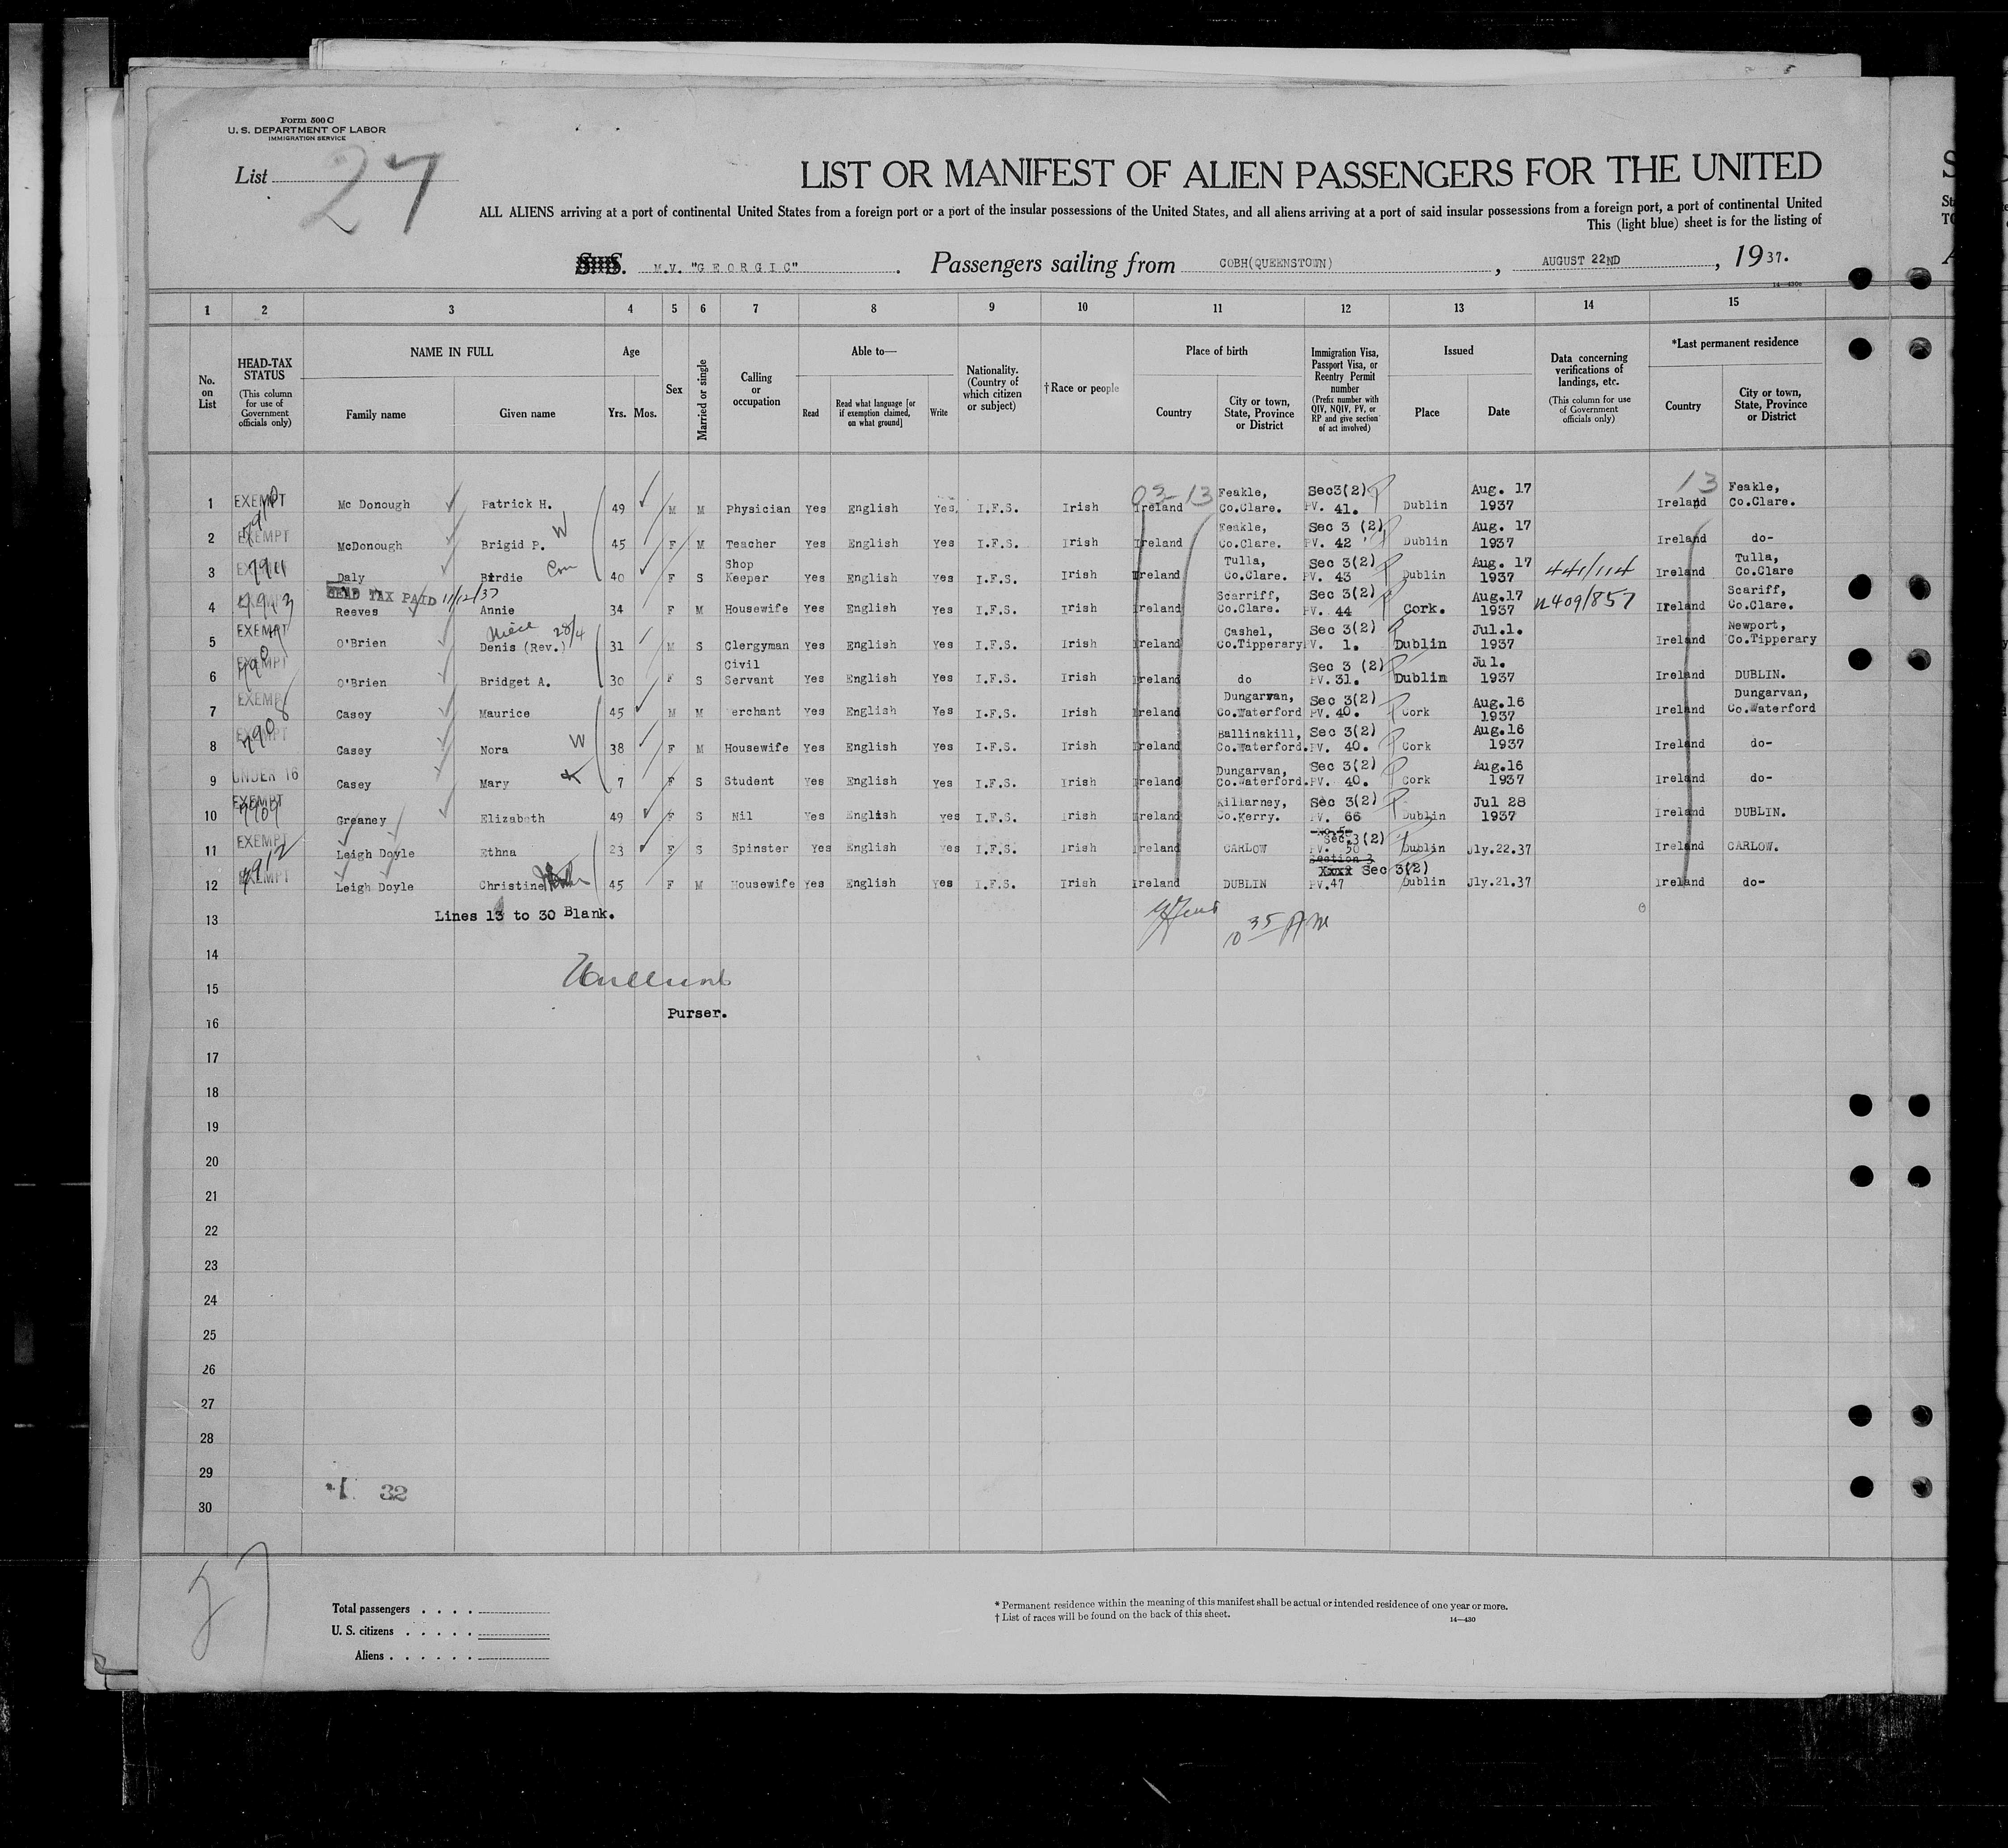 Form 500 C
U. S. DEPARTMENT OF LABOR
IMMIGRATION SERVICE
List 27
LIST OR MANIFEST OF ALIEN PASSENGERS FOR THE UNITED
ALL ALIENS arriving at a port of continental United States from a foreign port or a port of the insular possessions of the United States, and all aliens arriving at a port of said insular possessions from a foreign port, a port of continental United
This (light blue) sheet is for the listing of
S.S. M.V. "GEORGIC" . Passengers sailing from COBH(QUEENSTOWN) , AUGUST 22ND , 1937.
14—430c
1 2 3 4 5 6 7 8 9 10 11 12 13 14 15
No. on List
HEAD-TAX STATUS (This column for use of Government officials only)
NAME IN FULL
Family name Given name
Age
Yrs. Mos.
Sex
Married or single
Calling or occupation
Able to—
Read Read what language [or if exemption claimed, on what ground] Write
Nationality. (Country of which citizen or subject)
†Race or people
Place of birth
Country City or town, State, Province or District
Immigration Visa, Passport Visa, or Reentry Permit number (Prefix number with QIV, NQIV, PV, or RP and give section of act involved)
Issued
Place Date
Data concerning verifications of landings, etc. (This column for use of Government officials only)
*Last permanent residence
Country City or town, State, Province or District
03-13 13
1 EXEMPT Mc Donough Patrick H. 49 M M Physician Yes English Yes. I.F.S. Irish Ireland Feakle, Co.Clare. Sec3(2) PV. 41. Dublin Aug. 17 1937 Ireland Feakle, Co.Clare.
2 EXEMPT McDonough Brigid P. W 45 F M Teacher Yes English Yes I.F.S. Irish Ireland Feakle, Co.Clare. Sec 3 (2) PV. 42 Dublin Aug. 17 1937 Ireland do-
3 Daly Birdie 40 F S Shop Keeper Yes English Yes I.F.S. Irish Ireland Tulla, Co.Clare. Sec 3(2) PV. 43 Dublin Aug. 17 1937 441/114 Ireland Tulla, Co.Clare
HEAD TAX PAID 11/12/37
4 Reeves Annie 34 F M Housewife Yes English Yes I.F.S. Irish Ireland Scarriff, Co.Clare. Sec 3(2) PV. 44 Cork. Aug.17 1937 n409/857 Ireland Scariff, Co.Clare.
Niece 28/4
5 EXEMPT O'Brien Denis (Rev.) 31 M S Clergyman Yes English Yes I.F.S. Irish Ireland Cashel, Co.Tipperary Sec 3(2) PV. 1. Dublin Jul.1. 1937 Ireland Newport, Co.Tipperary
6 EXEMPT O'Brien Bridget A. 30 F S Civil Servant Yes English Yes I.F.S. Irish Ireland do Sec 3 (2) PV.31. Dublin Jul. 1937 Ireland DUBLIN.
7 EXEMPT Casey Maurice 45 M M Merchant Yes English Yes I.F.S. Irish Ireland Dungarvan, Co.Waterford Sec 3(2) PV. 40. Cork Aug.16 1937 Ireland Dungarvan, Co.Waterford
8 EXEMPT Casey Nora W 38 F M Housewife Yes English Yes I.F.S. Irish Ireland Ballinakill, Co.Waterford. Sec 3(2) PV. 40. Cork Aug.16 1937 Ireland do-
9 UNDER 16 Casey Mary 7 F S Student Yes English Yes I.F.S. Irish Ireland Dungarvan, Co.Waterford. Sec 3(2) PV. 40. Cork Aug.16 1937 Ireland do-
10 EXEMPT 7909 Greaney Elizabeth 49 F S Nil Yes English yes I.F.S. Irish Ireland Killarney, Co.Kerry. Sec 3(2) PV. 66 Dublin Jul 28 1937 Ireland DUBLIN.
11 EXEMPT Leigh Doyle Ethna 23 F S Spinster Yes English Yes I.F.S. Irish Ireland CARLOW Sec.3(2) PV. 50 Dublin Jly.22.37 Ireland CARLOW.
12 EXEMPT 7912 Leigh Doyle Christine 45 F M Housewife Yes English Yes I.F.S. Irish Ireland DUBLIN Section 3 Xxxx Sec 3(2) PV.47 Dublin Jly.21.37 Ireland do-
13 Lines 13 to 30 Blank.
10 35 AM
14
15
Purser.
16
17
18
19
20
21
22
23
24
25
26
27
28
29
32
30
27
Total passengers . . . .
U. S. citizens . . . . .
Aliens . . . . . .
* Permanent residence within the meaning of this manifest shall be actual or intended residence of one year or more.
† List of races will be found on the back of this sheet.
14—430